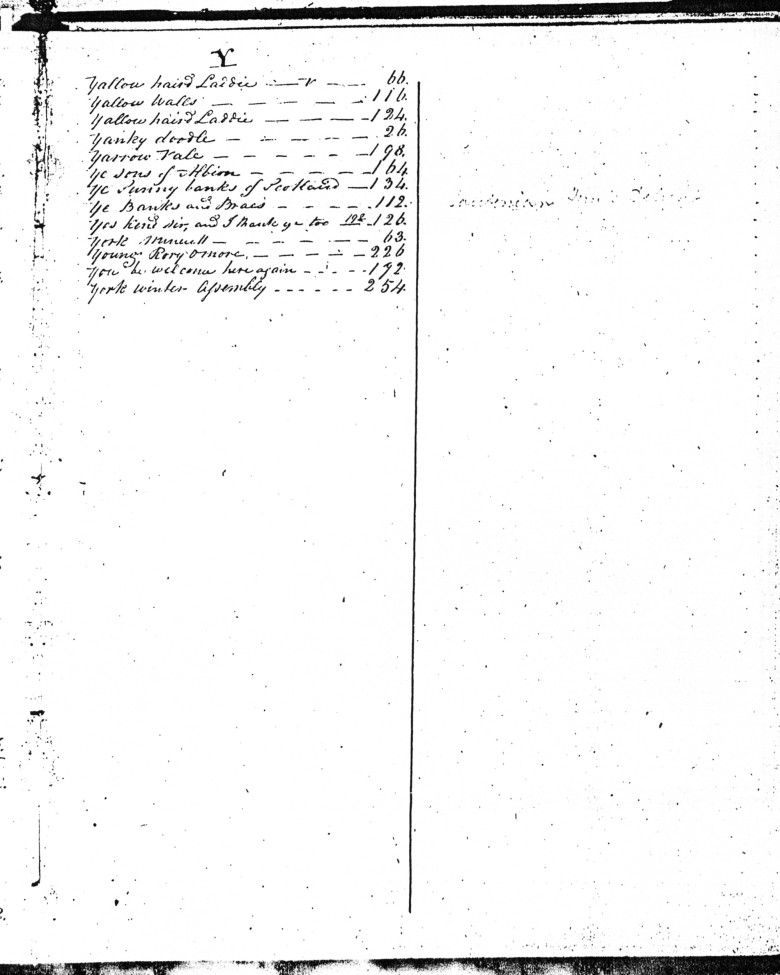 Y
Yallow hair'd Laddie — v — 66.
Yallow Walls — — — — 116.
Yallow hair'd Laddie — — — 124.
Yanky doodle — — — — — 26.
Yarrow Vale — — — — — 198.
Ye sons of Albion — — — — 164
Ye Sunny banks of Scotland — 134.
Ye Banks and Braes - - - - 112.
Yes kind sir, and I thank ye too 126.
York Minuett — — — — — 63.
Young Rory Omore, — — — — 226
You'd be welcome here again - - - - 192
York winter Assembly - - - - - - 254